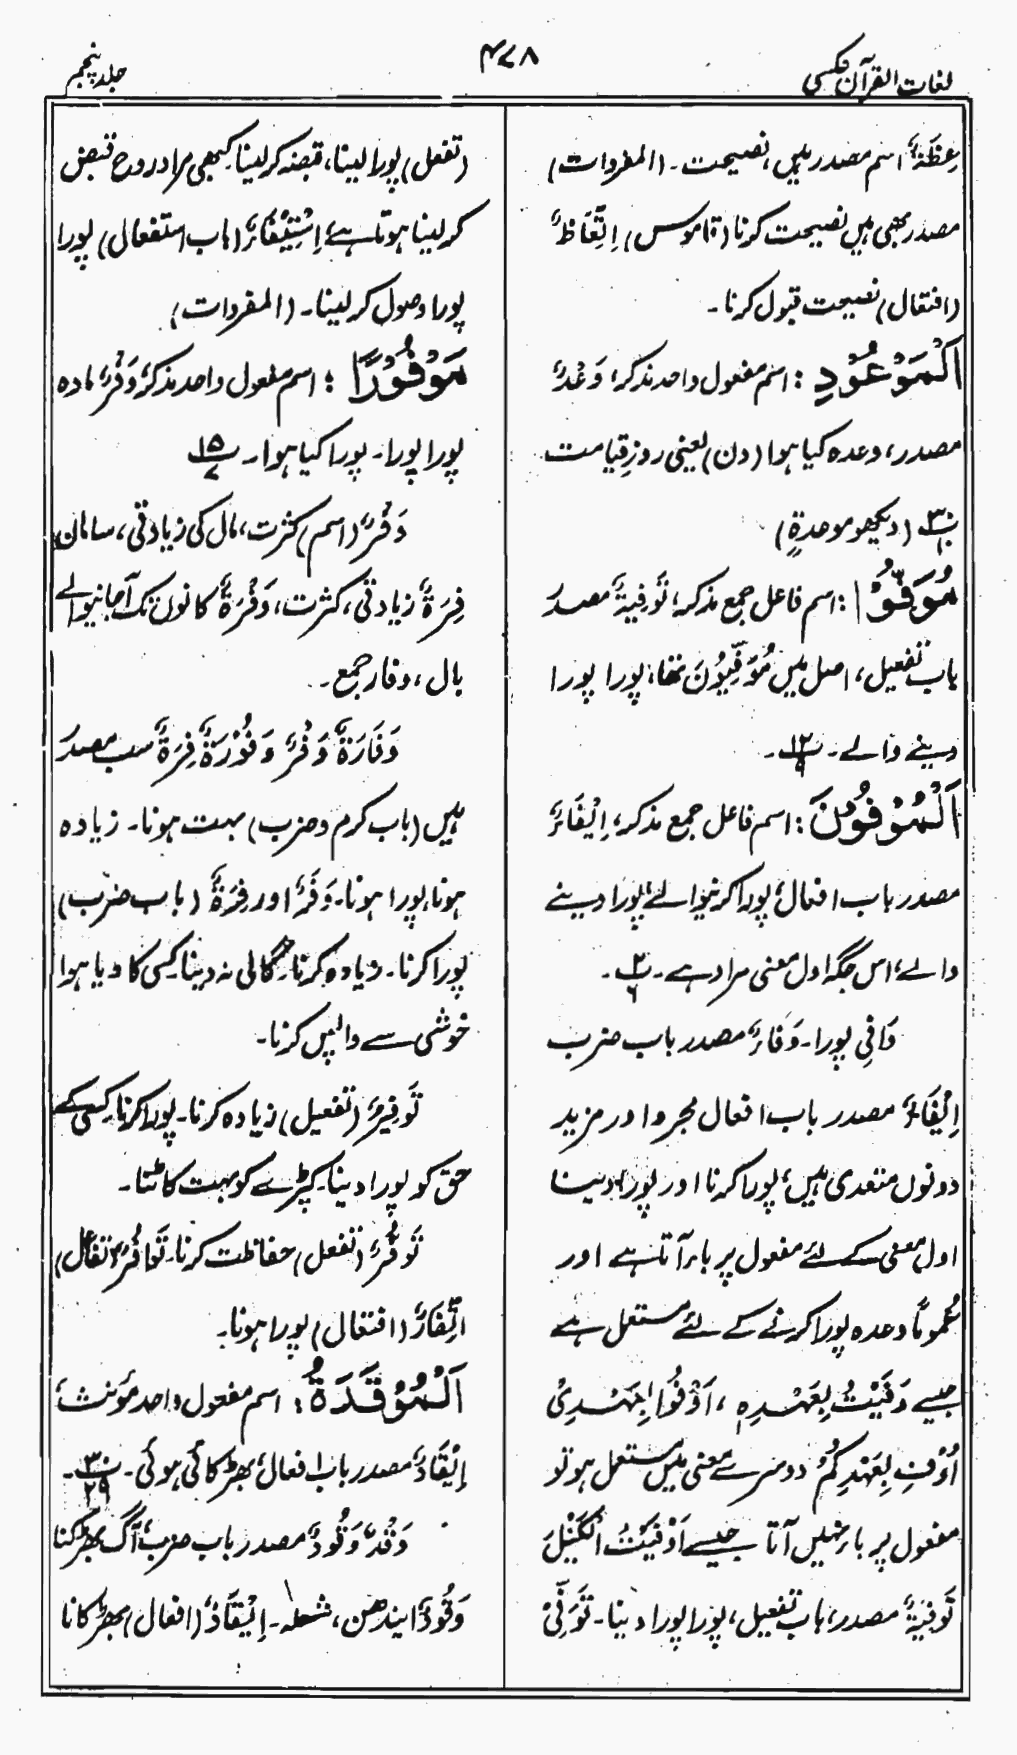 لغات القرآن عکسی
۴۷۸
جلد پنجم
عِظَۃٌ اسم مصدر ہیں، نصیحت۔ (المفردات)
مصدر بھی ہیں نصیحت کرنا (قاموس) اِتِّعَاظٌ
(افتعال) نصیحت قبول کرنا۔
اَلْمَوْعُوْدِ : اسم مفعول واحد مذکر، وَعْدٌ
مصدر، وعدہ کیا ہوا (دن) یعنی روزِ قیامت
پ۳۰ (دیکھو موعدۃٍ)
مُوَفُّوْا : اسم فاعل جمع مذکر، تَوْفِیَۃٌ مصدر
باب تفعیل، اصل میں مُوَفِّیُوْنَ تھا، پورا پورا
دینے والے۔ پ۱۲/۹۔
اَلْمُوْفُوْنَ : اسم فاعل جمع مذکر، اِیْفَاءٌ
مصدر باب افعال، پورا کرنیوالے، پورا دینے
والے، اس جگہ اول معنی مراد ہے۔ پ۲/۶۔
وَافِی پورا۔ وَفَاءٌ مصدر باب ضرب
اِیْفَاءٌ مصدر باب افعال مجرد اور مزید
دونوں متعدی ہیں، پورا کرنا اور پورا دینا
اول معنی کے لئے مفعول پر باء آتا ہے اور
عُموماً وعدہ پورا کرنے کے لئے مستعمل ہے
جیسے وَفَیْتُ بِعَھْدِہٖ ، اَوْفُوْا بِعَھْدِیْ
اُوْفِ بِعَھْدِکُمْ دوسرے معنی میں مستعمل ہو تو
مفعول پر باء نہیں آتا جیسے اَوْفَیْتُ الْکَیْلَ
تَوْفِیَۃٌ مصدر، باب تفعیل، پورا پورا دینا۔ تَوَفِّیْ
(تفعل) پورا لینا، قبضہ کر لینا۔ کبھی مراد روح قبض
کر لینا ہوتا ہے، اِسْتِیْفَاءٌ (باب استفعال) پورا
پورا وصول کر لینا۔ (المفردات)
مَوْفُوْرًا : اسم مفعول واحد مذکر، وَفْرٌ مادہ
پورا پورا۔ پورا کیا ہوا۔ پ۱۵/۷
وَفْرٌ (اسم) کثرت، مال کی زیادتی، سامان
فِرَۃٌ زیادتی، کثرت، وَفْرَۃٌ کانوں تک آجانیوالے
بال، وفار جمع۔
وَفَارَۃٌ وَفْرٌ وَفُوْرَۃٌ فِرَۃٌ سب مصدر
ہیں (باب کرم و ضرب) بہت ہونا۔ زیادہ
ہونا، پورا ہونا۔ وَفْرٌ اور فِرَۃٌ (باب ضرب)
پورا کرنا۔ زیادہ کرنا، گالی نہ دینا، کسی کا دیا ہوا
خوشی سے واپس کرنا۔
تَوفِیْرٌ (تفعیل) زیادہ کرنا۔ پورا کرنا، کسی کے
حق کو پورا دینا۔ کپڑے کو بہت کاٹنا۔
تَوَفُّرٌ (تفعل) حفاظت کرنا۔ تَوَافُرٌ (تفاعل)
اتِّفَارٌ (افتعال) پورا ہونا۔
اَلْمُوْقَدَۃُ : اسم مفعول واحد مؤنث،
اِیْقَادٌ مصدر باب افعال، بھڑکائی ہوئی۔ پ۳۰/۲۹۔
وَقْدٌ وَقُوْدٌ مصدر باب ضرب، آگ بھڑکنا
وَقُوْدٌ ایندھن، شعلہ۔ اِیْقَادٌ (افعال) بھڑکانا